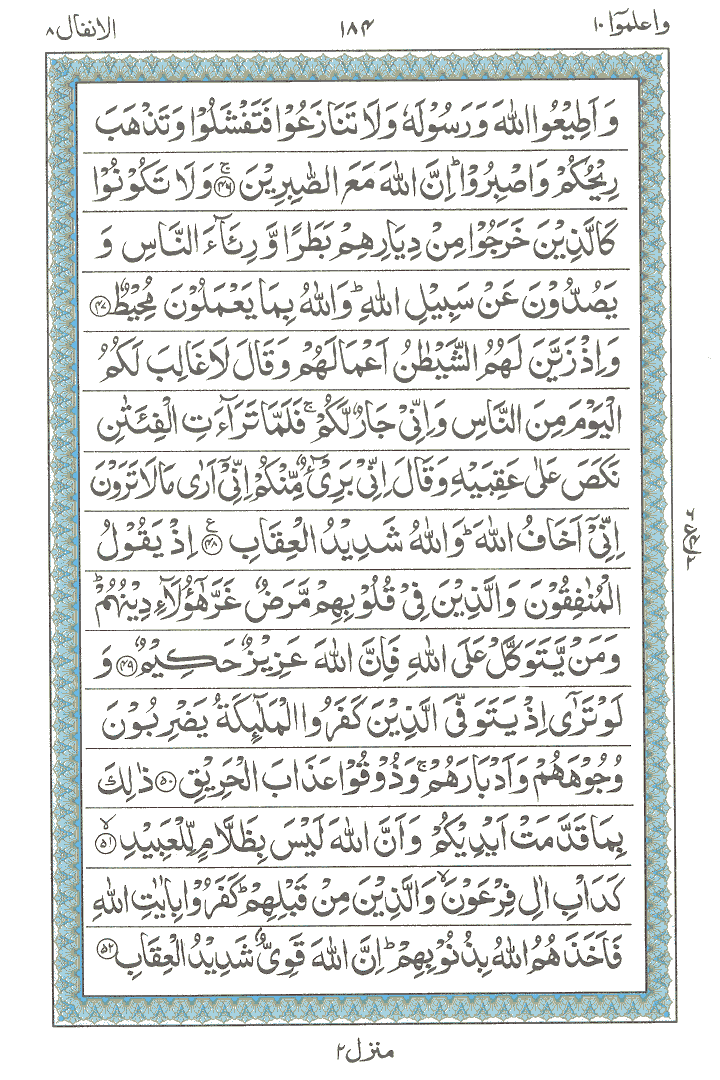 واعلموۤا ۱۰
۱۸۴
الانفال ۸
وَ اَطِیْعُوا اللّٰهَ وَ رَسُوْلَهٗ وَ لَا تَنَازَعُوْا فَتَفْشَلُوْا وَ تَذْهَبَ
رِیْحُكُمْ وَ اصْبِرُوْا ؕ اِنَّ اللّٰهَ مَعَ الصّٰبِرِیْنَ ۚ﴿۴۶﴾ وَ لَا تَكُوْنُوْا
كَالَّذِیْنَ خَرَجُوْا مِنْ دِیَارِهِمْ بَطَرًا وَّ رِئَآءَ النَّاسِ وَ
یَصُدُّوْنَ عَنْ سَبِیْلِ اللّٰهِ ؕ وَ اللّٰهُ بِمَا یَعْمَلُوْنَ مُحِیْطٌ ﴿۴۷﴾
وَ اِذْ زَیَّنَ لَهُمُ الشَّیْطٰنُ اَعْمَالَهُمْ وَ قَالَ لَا غَالِبَ لَكُمُ
الْیَوْمَ مِنَ النَّاسِ وَ اِنِّیْ جَارٌ لَّكُمْ ۚ فَلَمَّا تَرَآءَتِ الْفِئَتٰنِ
نَكَصَ عَلٰی عَقِبَیْهِ وَ قَالَ اِنِّیْ بَرِیْٓءٌ مِّنْكُمْ اِنِّیْۤ اَرٰی مَا لَا تَرَوْنَ
اِنِّیْۤ اَخَافُ اللّٰهَ ؕ وَ اللّٰهُ شَدِیْدُ الْعِقَابِ ﴿۴۸﴾ ع اِذْ یَقُوْلُ
الْمُنٰفِقُوْنَ وَ الَّذِیْنَ فِیْ قُلُوْبِهِمْ مَّرَضٌ غَرَّ هٰۤؤُلَآءِ دِیْنُهُمْ ؕ
وَ مَنْ یَّتَوَكَّلْ عَلَی اللّٰهِ فَاِنَّ اللّٰهَ عَزِیْزٌ حَكِیْمٌ ﴿۴۹﴾ وَ
لَوْ تَرٰۤی اِذْ یَتَوَفَّی الَّذِیْنَ كَفَرُوا الْمَلٰٓىِٕكَةُ یَضْرِبُوْنَ
وُجُوْهَهُمْ وَ اَدْبَارَهُمْ ۚ وَ ذُوْقُوْا عَذَابَ الْحَرِیْقِ ﴿۵۰﴾ ذٰلِكَ
بِمَا قَدَّمَتْ اَیْدِیْكُمْ وَ اَنَّ اللّٰهَ لَیْسَ بِظَلَّامٍ لِّلْعَبِیْدِ ۙ﴿۵۱﴾
كَدَاْبِ اٰلِ فِرْعَوْنَ ۙ وَ الَّذِیْنَ مِنْ قَبْلِهِمْ ؕ كَفَرُوْا بِاٰیٰتِ اللّٰهِ
فَاَخَذَهُمُ اللّٰهُ بِذُنُوْبِهِمْ ؕ اِنَّ اللّٰهَ قَوِیٌّ شَدِیْدُ الْعِقَابِ ﴿۵۲﴾
منزل ۲